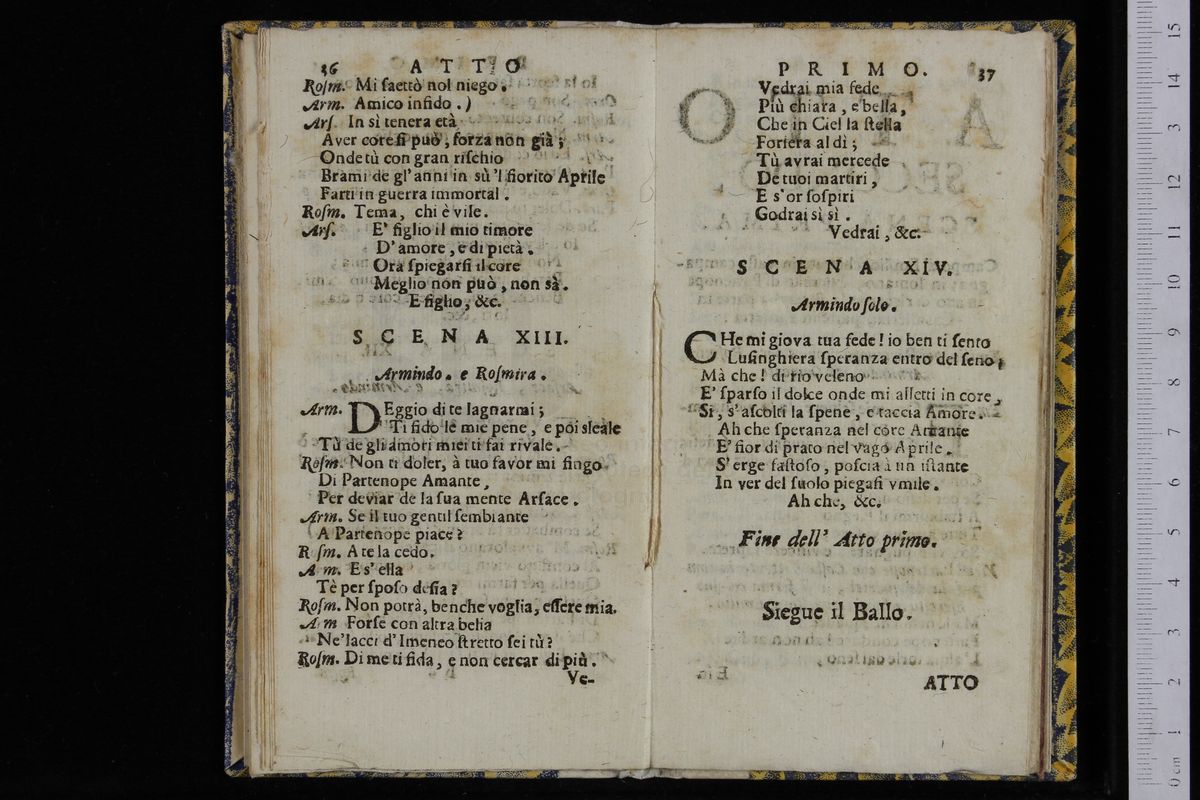 36 ATTO
Rosm. Mi saettò nol niego.
Arm. Amico infido.)
Ars. In sì tenera età
Aver core si può, forza non già;
Onde tù con gran rischio
Brami de gl'anni in sù 'l fiorito Aprile
Farti in guerra immortal.
Rosm. Tema, chi è vile.
Ars. E' figlio il mio timore
D'amore, e di pietà.
Ora spiegarsi il core
Meglio non può, non sà.
E figlio, &c.
SCENA XIII.
Armindo. e Rosmira.
Arm. DEggio di te lagnarmi;
Ti fido le mie pene, e poi sleale
Tù de gli amori miei ti fai rivale.
Rosm. Non ti doler, à tuo favor mi fingo
Di Partenope Amante,
Per deviar de la sua mente Arsace.
Arm. Se il tuo gentil sembiante
A Partenope piace?
R sm. A te la cedo.
A m. E s'ella
Tè per sposo desia?
Rosm. Non potrà, benche voglia, essere mia.
A m Forse con altra belia
Ne'lacci d'Imeneo stretto sei tù?
Rosm. Di me ti fida, e non cercar di più.
Ve-
PRIMO. 37
Vedrai mia fede
Più chiara, e bella,
Che in Ciel la stella
Foriera al dì;
Tù avrai mercede
De tuoi martiri,
E s'or sospiri
Godrai sì sì.
Vedrai, &c.
SCENA XIV.
Armindo solo.
CHe mi giova tua fede! io ben ti sento
Lusinghiera speranza entro del seno;
Mà che! di rio veleno
E' sparso il dolce onde mi alletti in core,
Si, s'ascolti la spene, e taccia Amore.
Ah che speranza nel core Amante
E' fior di prato nel vago Aprile.
S'erge fastoso, poscia à un istante
In ver del suolo piegasi vmile.
Ah che, &c.
Fine dell' Atto primo.
Siegue il Ballo.
ATTO